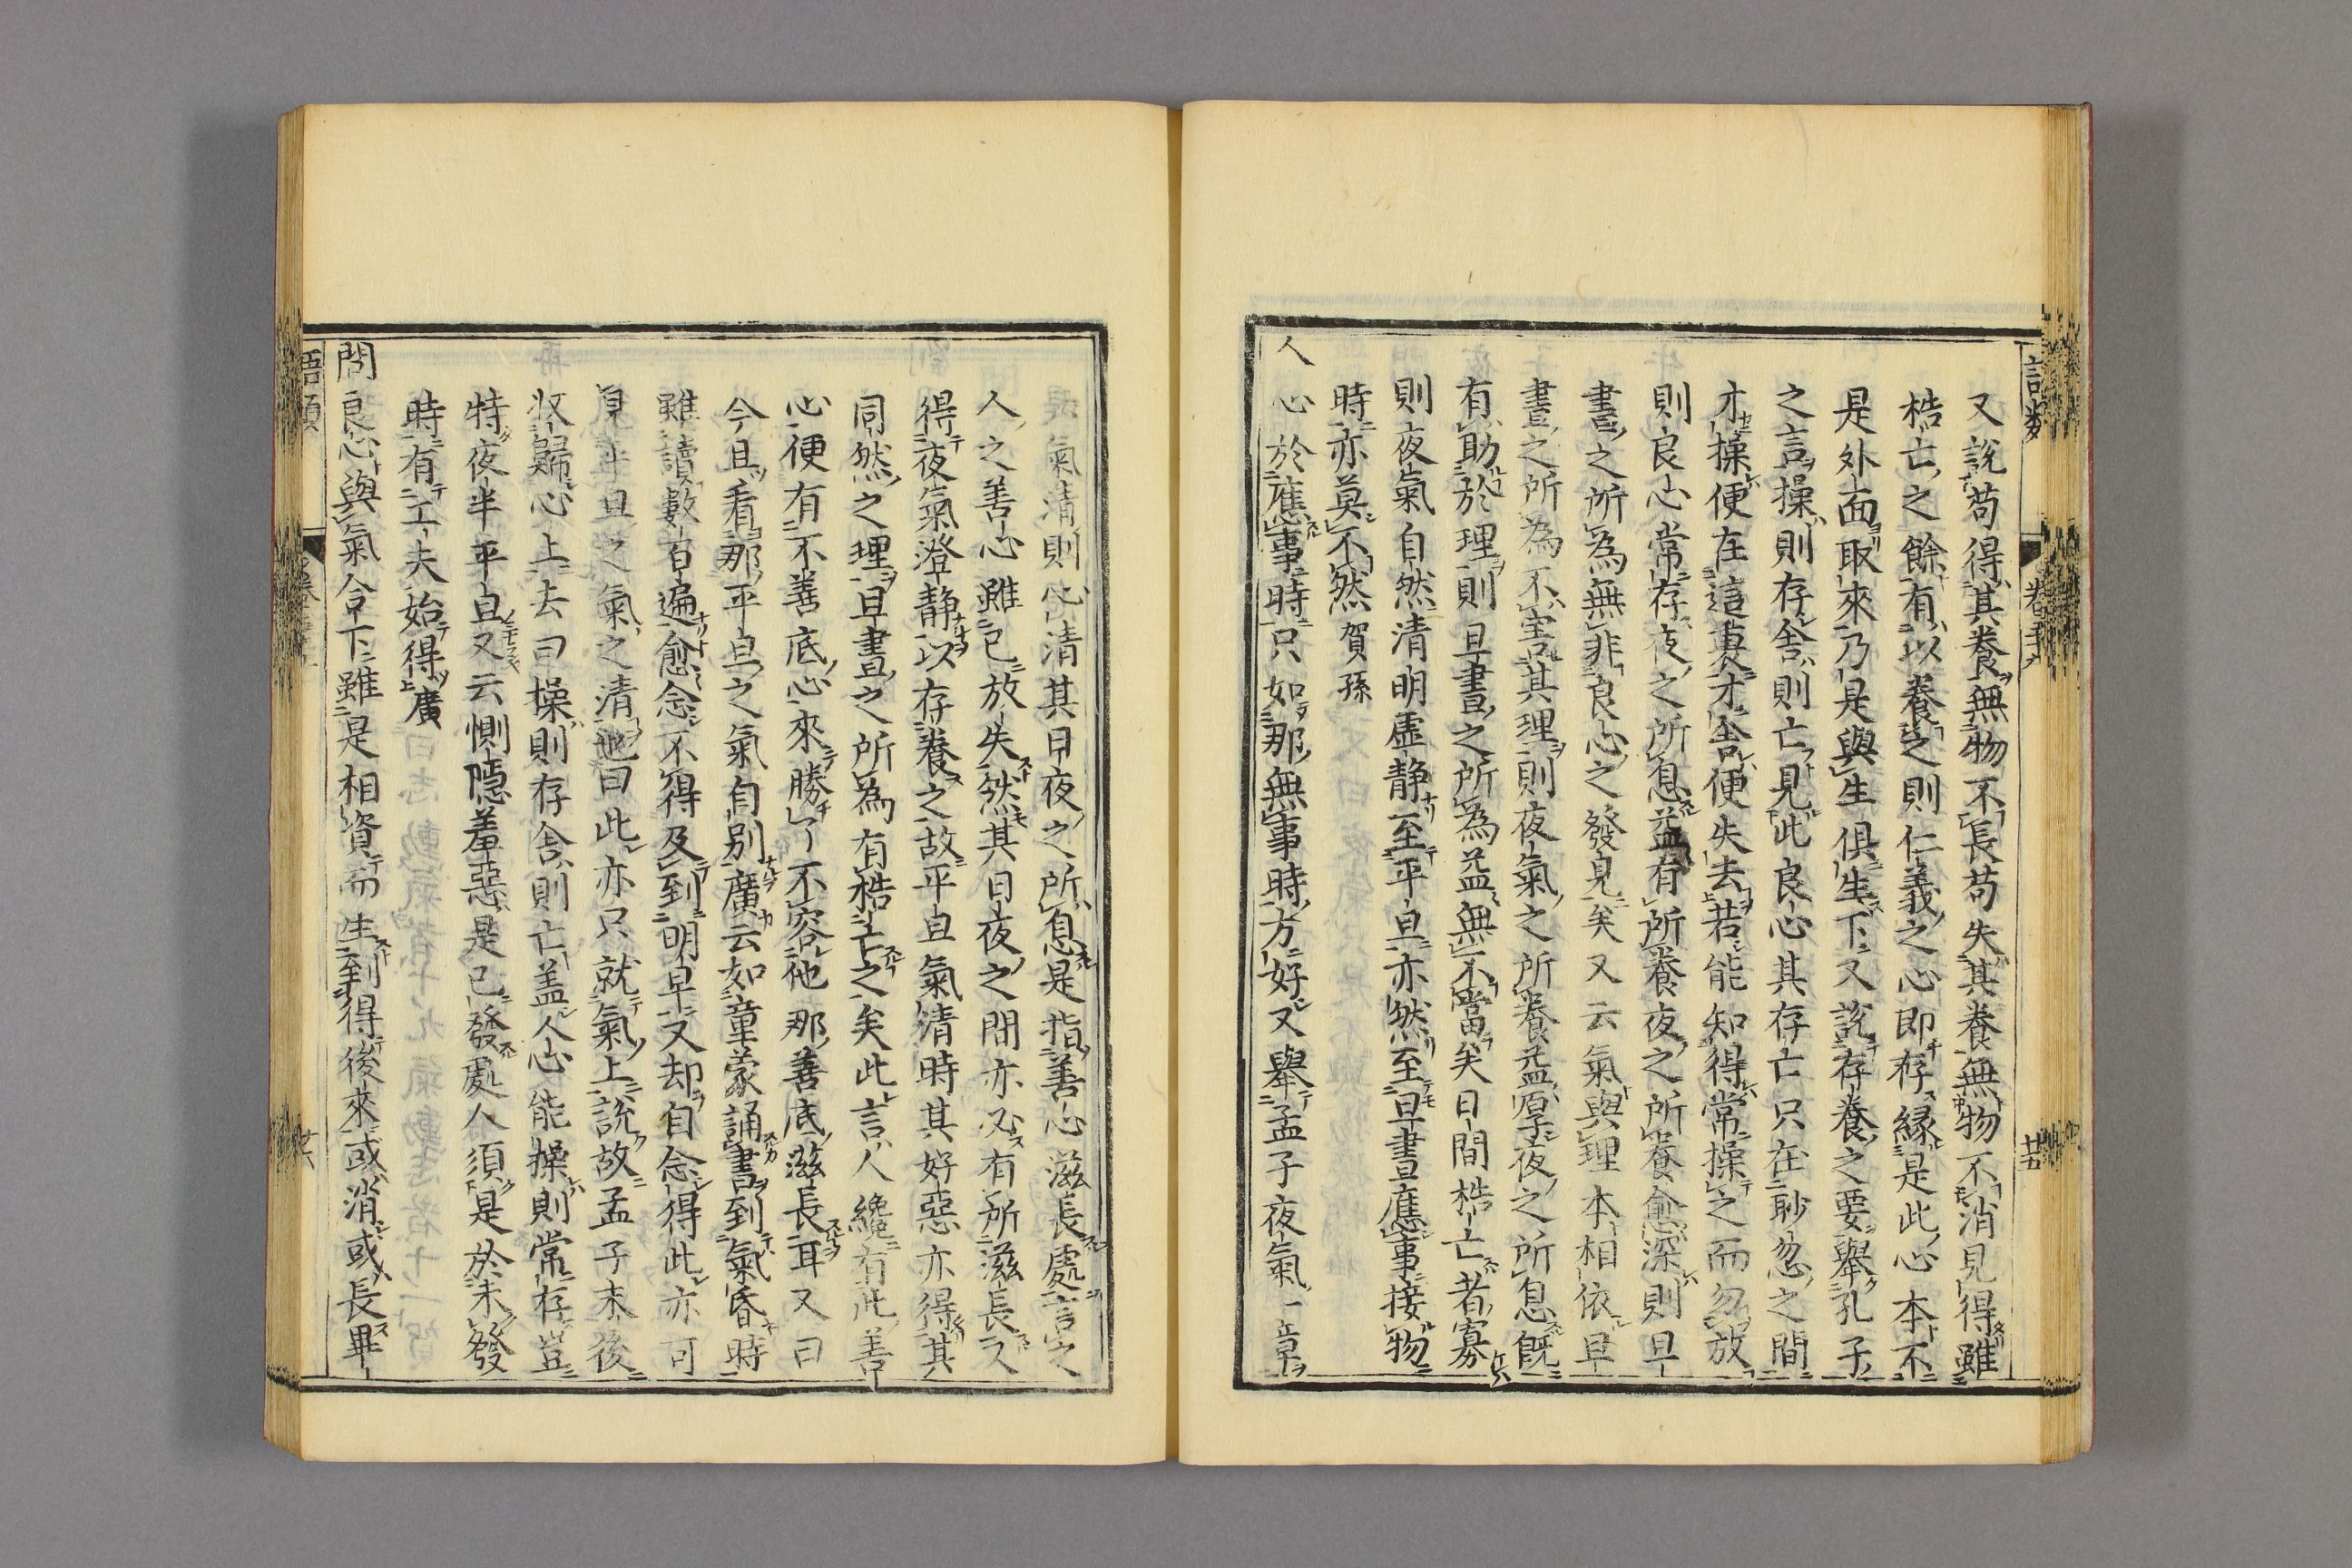 又說苟得其養無物不長苟失其養無物不消見得雖
梏亡之餘有以養之則仁義之心即存縁是此心本不
是外面取來乃是與生俱生下又說存養之要舉孔子
之言操則存舍則亡見此良心其存亡只在眇忽之間
才操便在這裏才舍便失去若能知得常操之而勿放
則良心常存夜之所息益有所養夜之所養愈深則旦
晝之所為無非良心之發見矣又云氣與理本相依旦
晝之所為不害其理則夜氣之所養益厚夜之所息既
有助於理則旦晝之所為益無不當矣日間梏亡者寡
則夜氣自然清明虚静至平旦亦然至旦晝應事接物
時亦莫不然賀孫
人心於應事時只如那無事時方好又舉孟子夜氣一章
氣清則心清其日夜之所息是指善心滋長處言之
人之善心雖已放失然其日夜之間亦必有所滋長又
得夜氣澄静以存養之故平旦氣清時其好惡亦得其
同然之理旦晝之所為有梏亡之矣此言人纔有此善
心便有不善底心來勝了不容他那善底滋長耳又曰
今且看那平旦之氣自别廣云如童蒙誦書到氣昏時
雖讀數百遍愈念不得及到明早又却自念得此亦可
見平旦之氣之清也曰此亦只就氣上說故孟子末後
收歸心上去曰操則存舍則亡盖人心能操則常存豈
特夜半平旦又云惻隠羞惡是已發處人須是於未發
時有工夫始得廣
問良心與氣合下雖是相資而生到得後來或消或長畢
語類
卷五十九
廿五
語類
廿六